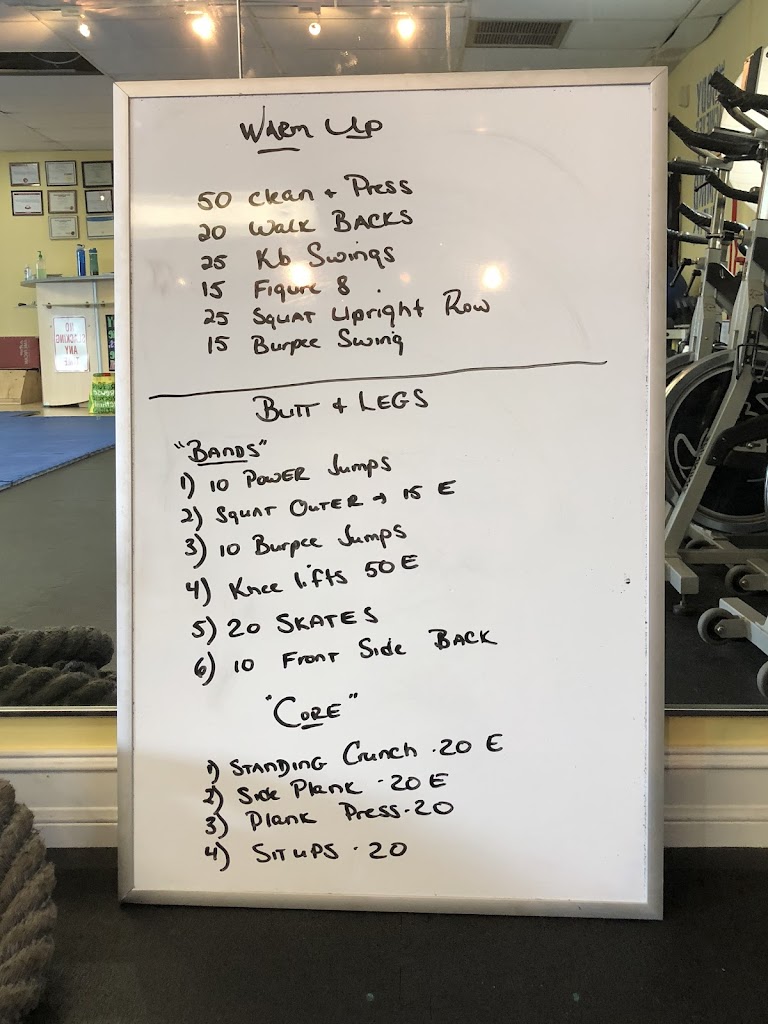 WARM UP
50 Clean + Press
20 Walk BACKS
25 Kb Swings
15 Figure 8
25 SQUAT Upright Row
15 Burpee Swing
BUTT + LEGS
"BANDS"
1) 10 POWER Jumps
2) SQUAT OUTER → 15 E
3) 10 Burpee Jumps
4) Knee lifts 50 E
5) 20 SKATES
6) 10 FRONT Side BACK
"CORE"
1) STANDING Crunch · 20 E
2) Side Plank · 20 E
3) Plank Press · 20
4) SIT UPS · 20
NO
PARKING
ANY
TIME